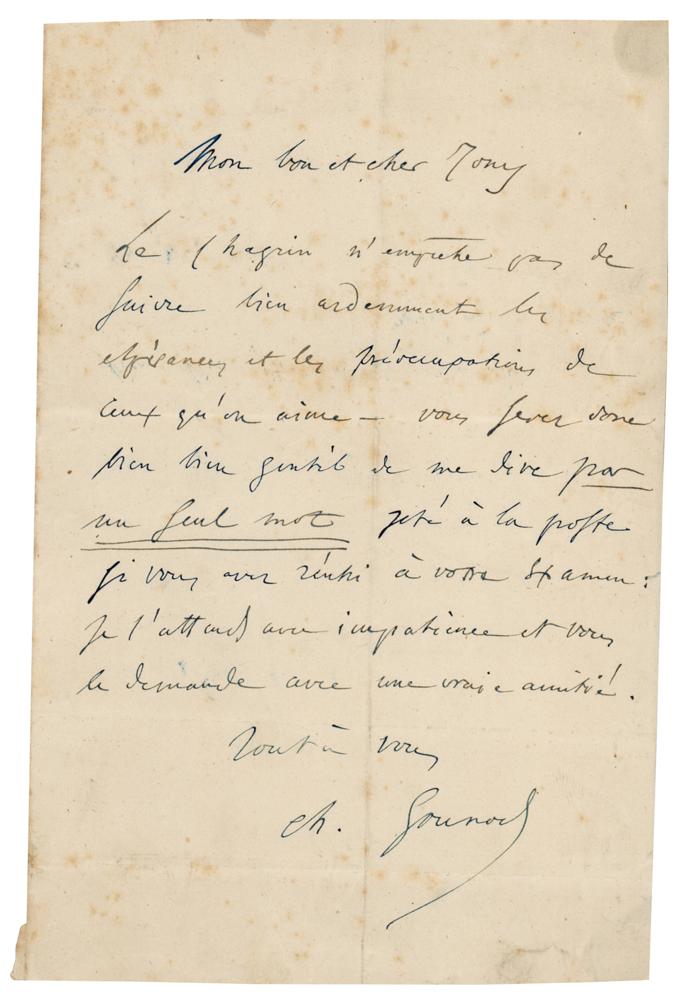 Mon bon et cher Tony
Le Chagrin n'empêche pas de
suivre bien ardemment les
espérances et les préoccupations de
ceux qu'on aime — vous serez donc
bien bien gentil de me dire par
un seul mot jeté à la poste
si vous avez réussi à votre Examen :
je l'attends avec impatience et vous
le demande avec une vraie amitié.
Tout à vous
Ch. Gounod